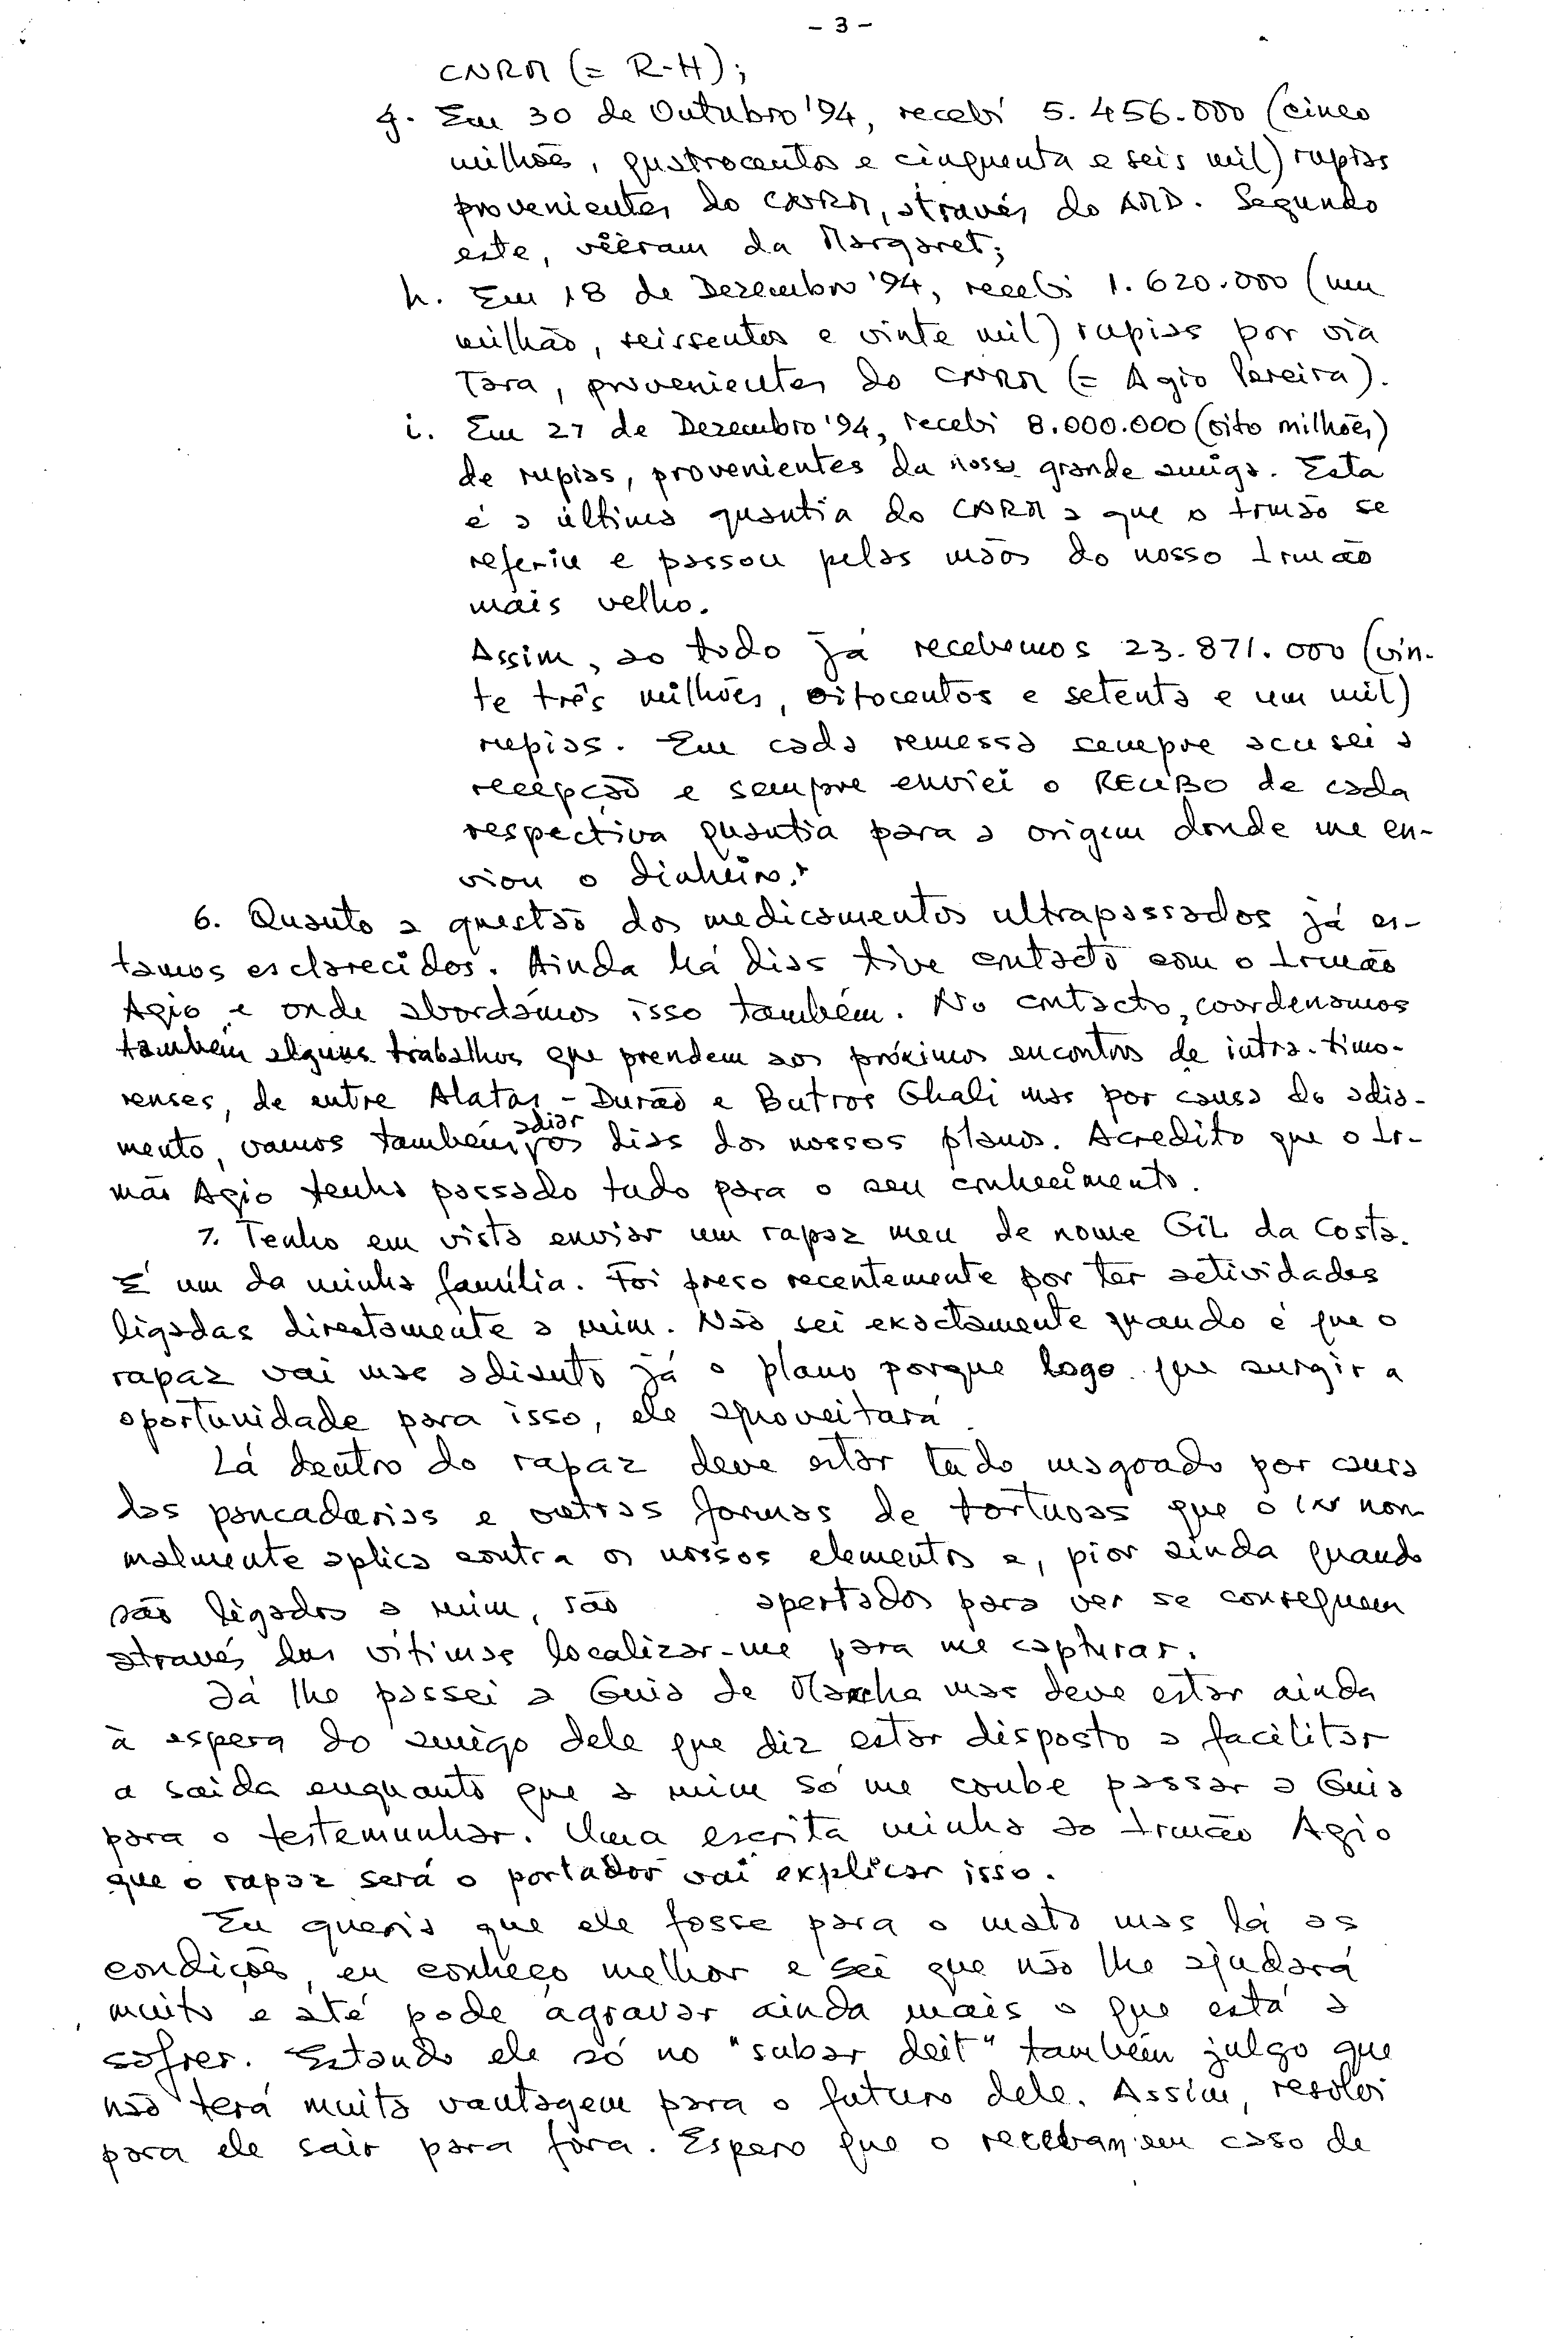 - 3 -
CNRM (= R-H);
g. Em 30 de Outubro '94, recebi 5.456.000 (cinco
milhões, quatrocentos e cinquenta e seis mil) rupias
provenientes do CNRM, através do AMD. Segundo
este, viéram da Margaret;
h. Em 18 de Dezembro '94, recebi 1.620.000 (um
milhão, seissentos e vinte mil) rupias por via
Tara, provenientes do CNRM (= Agio Pereira).
i. Em 27 de Dezembro '94, recebi 8.000.000 (oito milhões)
de rupias, provenientes da nossa grande amiga. Esta
é a última quantia do CNRM a que o Irmão se
referiu e passou pelas mãos do nosso Irmão
mais velho.
Assim, ao todo já recebemos 23.871.000 (vin-
te três milhões, oitocentos e setenta e um mil)
rupias. Em cada remessa sempre acusei a
recepção e sempre enviei o RECIBO de cada
respectiva quantia para a origem donde me en-
viou o dinheiro.
6. Quanto a questão dos medicamentos ultrapassados já es-
tamos esclarecidos. Ainda há dias tive contacto com o Irmão
Agio e onde abordámos isso também. No contacto, coordenamos
também alguns trabalhos que prendem aos próximos encontros de intra-timo-
renses, de entre Alatas - Durão e Butros Ghali mas por causa do adia-
mento, vamos também adiar os dias dos nossos planos. Acredito que o Ir-
mão Agio tenha passado tudo para o seu conhecimento.
7. Tenho em vista enviar um rapaz meu de nome Gil da Costa.
É um da minha família. Foi preso recentemente por ter actividades
ligadas directamente a mim. Não sei exactamente quando é que o
rapaz vai mas adianto já o plano porque logo que surgir a
oportunidade para isso, ele aproveitará.
Lá dentro do rapaz deve estar tudo magoado por causa
das pancadarias e outras formas de torturas que o in nor-
malmente aplica contra os nossos elementos e, pior ainda quando
são ligados a mim, são apertados para ver se conseguem
através das vítimas localizar-me para me capturar.
Já lhe passei a Guia de Marcha mas deve estar ainda
à espera do amigo dele que diz estar disposto a facilitar
a saída enquanto que a mim só me coube passar a Guia
para o testemunhar. Uma escrita minha ao Irmão Agio
que o rapaz será o portador vai explicar isso.
Eu queria que ele fosse para o mato mas lá as
condições, eu conheço melhor e sei que não lhe ajudará
muito e até pode agravar ainda mais o que está a
sofrer. Estando ele só no "subar deit" também julgo que
não terá muita vantagem para o futuro dele. Assim, resolvi
para ele sair para fora. Espero que o recebam em caso de